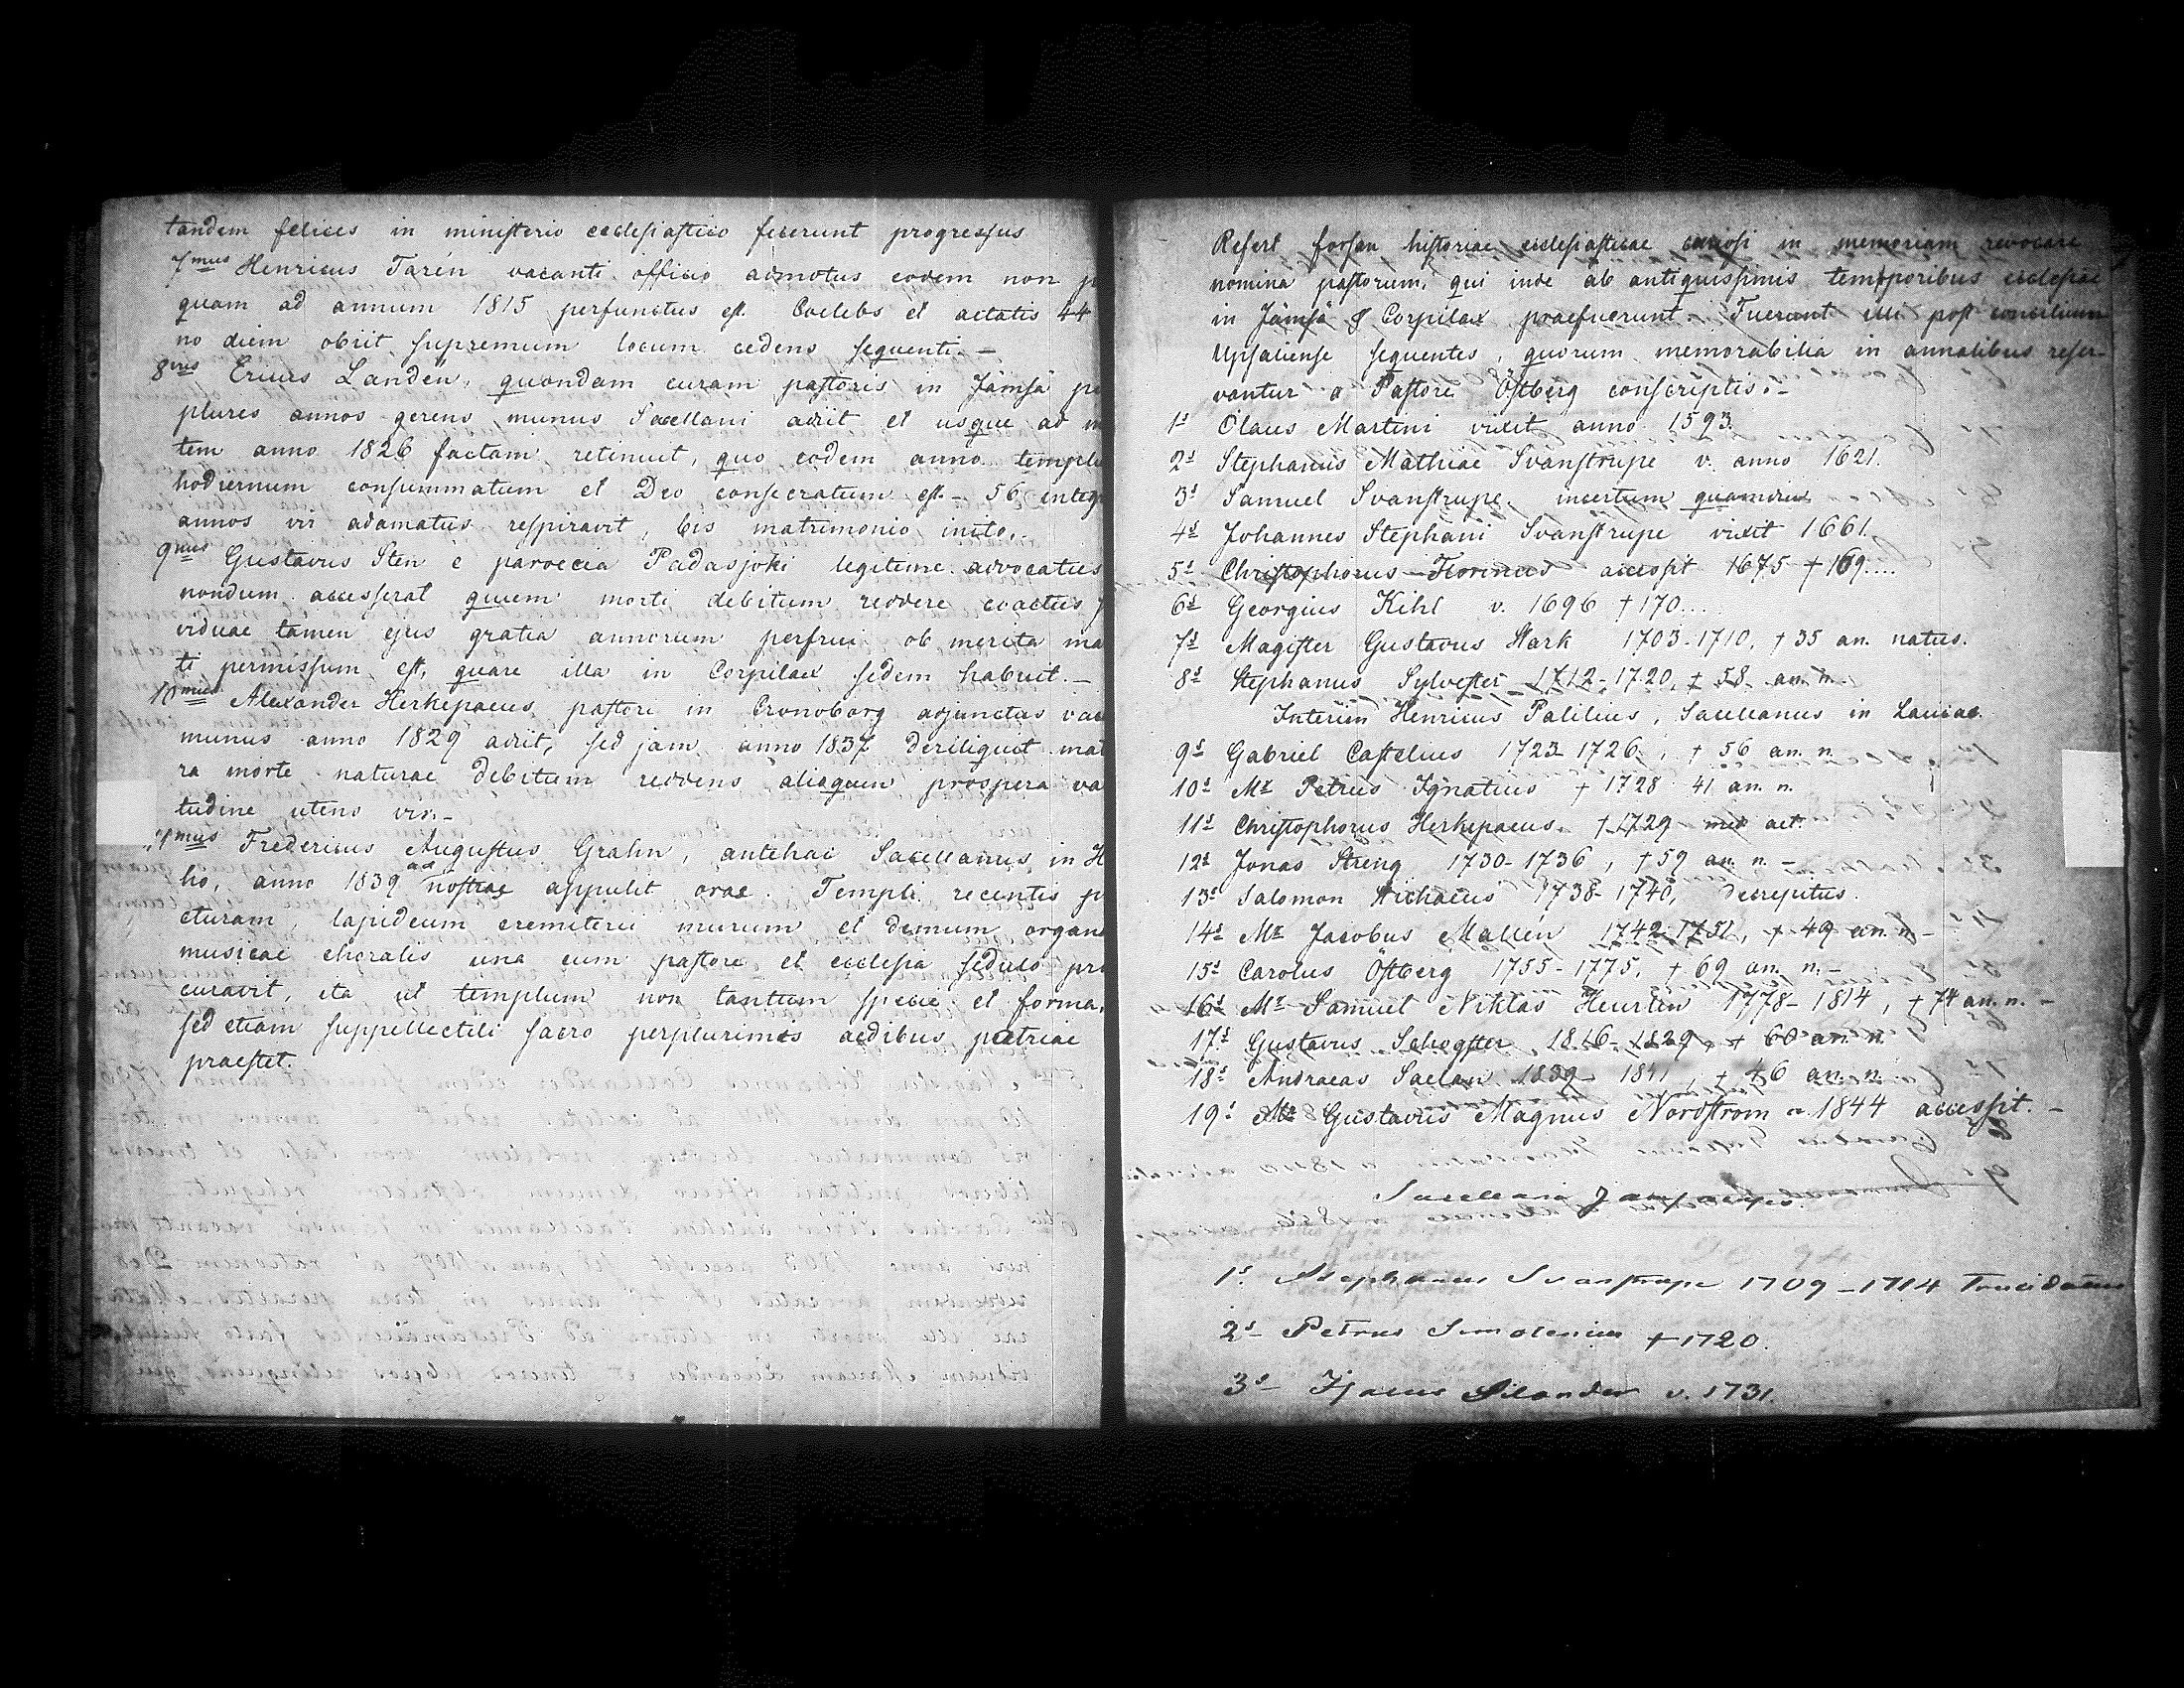 tandem felices in ministerio ecclesiastico fecerunt progressus
7mus Henricus Tarén vacanti officio admotus eodem non
quam ad annum 1815 perfunctus est. Coelebs et aetatis 44
no diem obiit supremum locum cedens sequenti. –
8vus Ericus Landén, quondam curam pastoris in Jämsä
plures annos gerens munus Sacellani adiit et usque ad
tem anno 1826 factam retinuit, quo eodem anno templu
hodiernum consummatum et Deo consecratum est – 56 integ
annos vir adamatus respiravit, bis matrimonio inito.
9nus Gustavus Sten è paroecia Padasjoki legitime advocatus
nondum accesserat quum morti debitum reddere coactus
viduae tamen ejus gratia annorum perfrui ob merita ma
ti permissum est, quare illa in Corpilax sedem habuit. –
10mus Alexander Herkepaeus, pastori in Cronoborg adjunctus va
munus anno 1829 adiit, sed jam anno 1837 deriliquit ma
ra morte naturae debitum reddens alioquin prospera va
tudine utens vir. –
11mus Fredericus Augustus Grahn, antehac Sacellanus in H
ho, anno 1839 ad nostrae appulit orae. Templi recentis
cturam, lapideum cremiterii murum et demum organ
musicae choralis una cum pastore et ecclesia sedulo pro
curavit, ita ut templum non tantum specie et forma,
sed etiam suppellectili sacro perplurimis aedibus patriae
praestet.
Refert forsan historiae ecclesiasticae curiosi in memoriam revocare
nomina pastorum, qui inde ab antiquissimis temporibus ecclesiae
in Jämsä & Corpilax praefuerunt. Fuerunt illi post concilium
Upsaliense sequentes, quorum memorabilia in annalibus reser-
vantur a Pastore Östberg conscriptis. –
1s Olaus Martini vixit anno 1593.
2s Stephanus Mathiae Svanstrupe v. anno 1621.
3s Samuel Svanstrupe, incertum quamdiu
4s Johannes Stephani Svanstrupe vixit 1661.
5s Christophorus Florinus accessit 1675 † 169....
6s Georgius Kihl v. 1696 † 170...
7s Magister Gustavus Stark 1703-1710, † 35 an. natus.
8s Stephanus Sylvester 1712-1720, † 58 an. n.
Interim Henricus Palilius, Sacellanus in Lauias.
9s Gabriel Castelius 1723-1726, † 56 an. n.
10s Mr Petrus Ignatius † 1728 41 an. n.
11s Christophorus Herkepaeus. † 1729 med. aet.
12s Jonas Streng 1730-1736, † 59 an. n. –
13s Salomon Michaeus 1738-1740, decrepitus.
14s Mr Jacobus Mallén 1742-1751, † 49 an. n –
15s Carolus Östberg 1755-1775, † 69 an. n. –
16s Mr Samuel Niklas Heurlin 1778-1814, † 74 an. n. –
17s Gustavus Schogster 1816-1829, † 60 an. n
18s Andraeas Saelan 1839-1841, † 46 an. n.
19s Mr Gustavus Magnus Nordstrom a. 1844 accessit. –
Sacellani
1s. Stephanus Svanstrupe 1709-1714 Trucidatus
2s – Petrus Simolenius † 1720.
3s – Isacus Silander v. 1731.